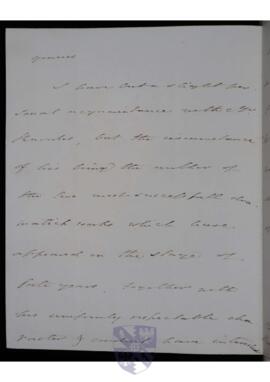 I have but a slight per
sonal acquaintance with Mr
Knowles, but the circumstance
of his being the author of
the two most successful dra
matick works which have
appeared on the stage of
late years, together with
his uniformly respectable cha
racter & conduct have